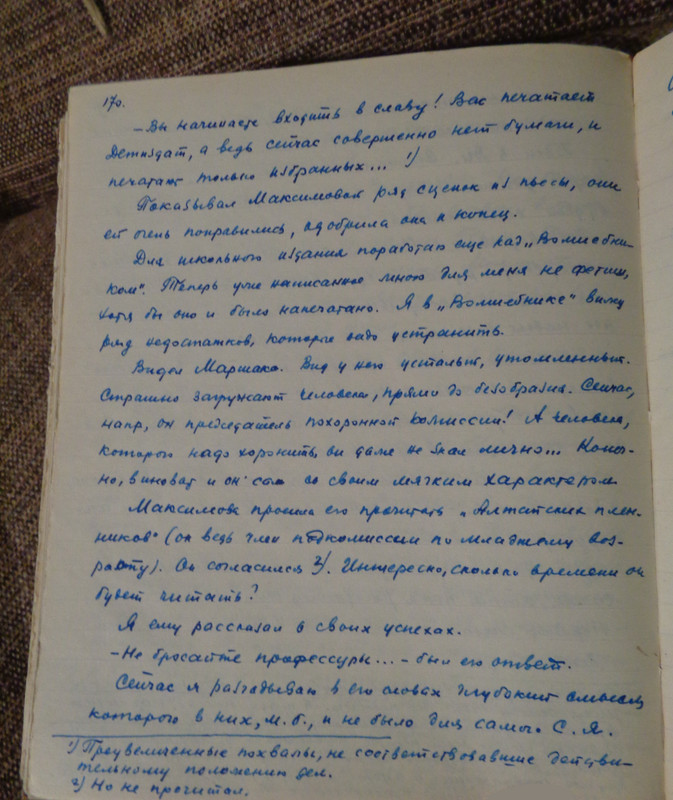 170.
- Вы начинаете входить в славу! Вас печатает
Детиздат, а ведь сейчас совершенно нет бумаги, и
печатают только избранных... ¹)
Показывал Максимовой ряд сценок из пьесы, они
ей очень понравились, одобрила она и конец.
Для школьного издания поработаю еще над „Волшебни-
ком“. Теперь уже написанное мною для меня не фетиш,
хотя бы оно и было напечатано. Я в „Волшебнике“ вижу
ряд недостатков, которые надо устранить.
Видел Маршака. Вид у него усталый, утомленный.
Страшно загружают человека, прямо до безобразия. Сейчас,
напр, он председатель похоронной комиссии! А человека,
которого надо хоронить, он даже не знал лично... Конеч-
но, виноват и он сам со своим мягким характером
Максимова просила его прочитать „Алтайских плен-
ников“ (он ведь член подкомиссии по младшему воз-
расту). Он согласился ²). Интересно, сколько времени он
будет читать?
Я ему рассказал о своих успехах.
- Не бросайте профессуры... - был его ответ.
Сейчас я разгадываю в его словах глубокий смысл,
которого в них, м.б., и не было для самого С. Я.
¹) Преувеличенные похвалы, не соответствовавшие действи-
тельному положению дел.
²) Но не прочитал.